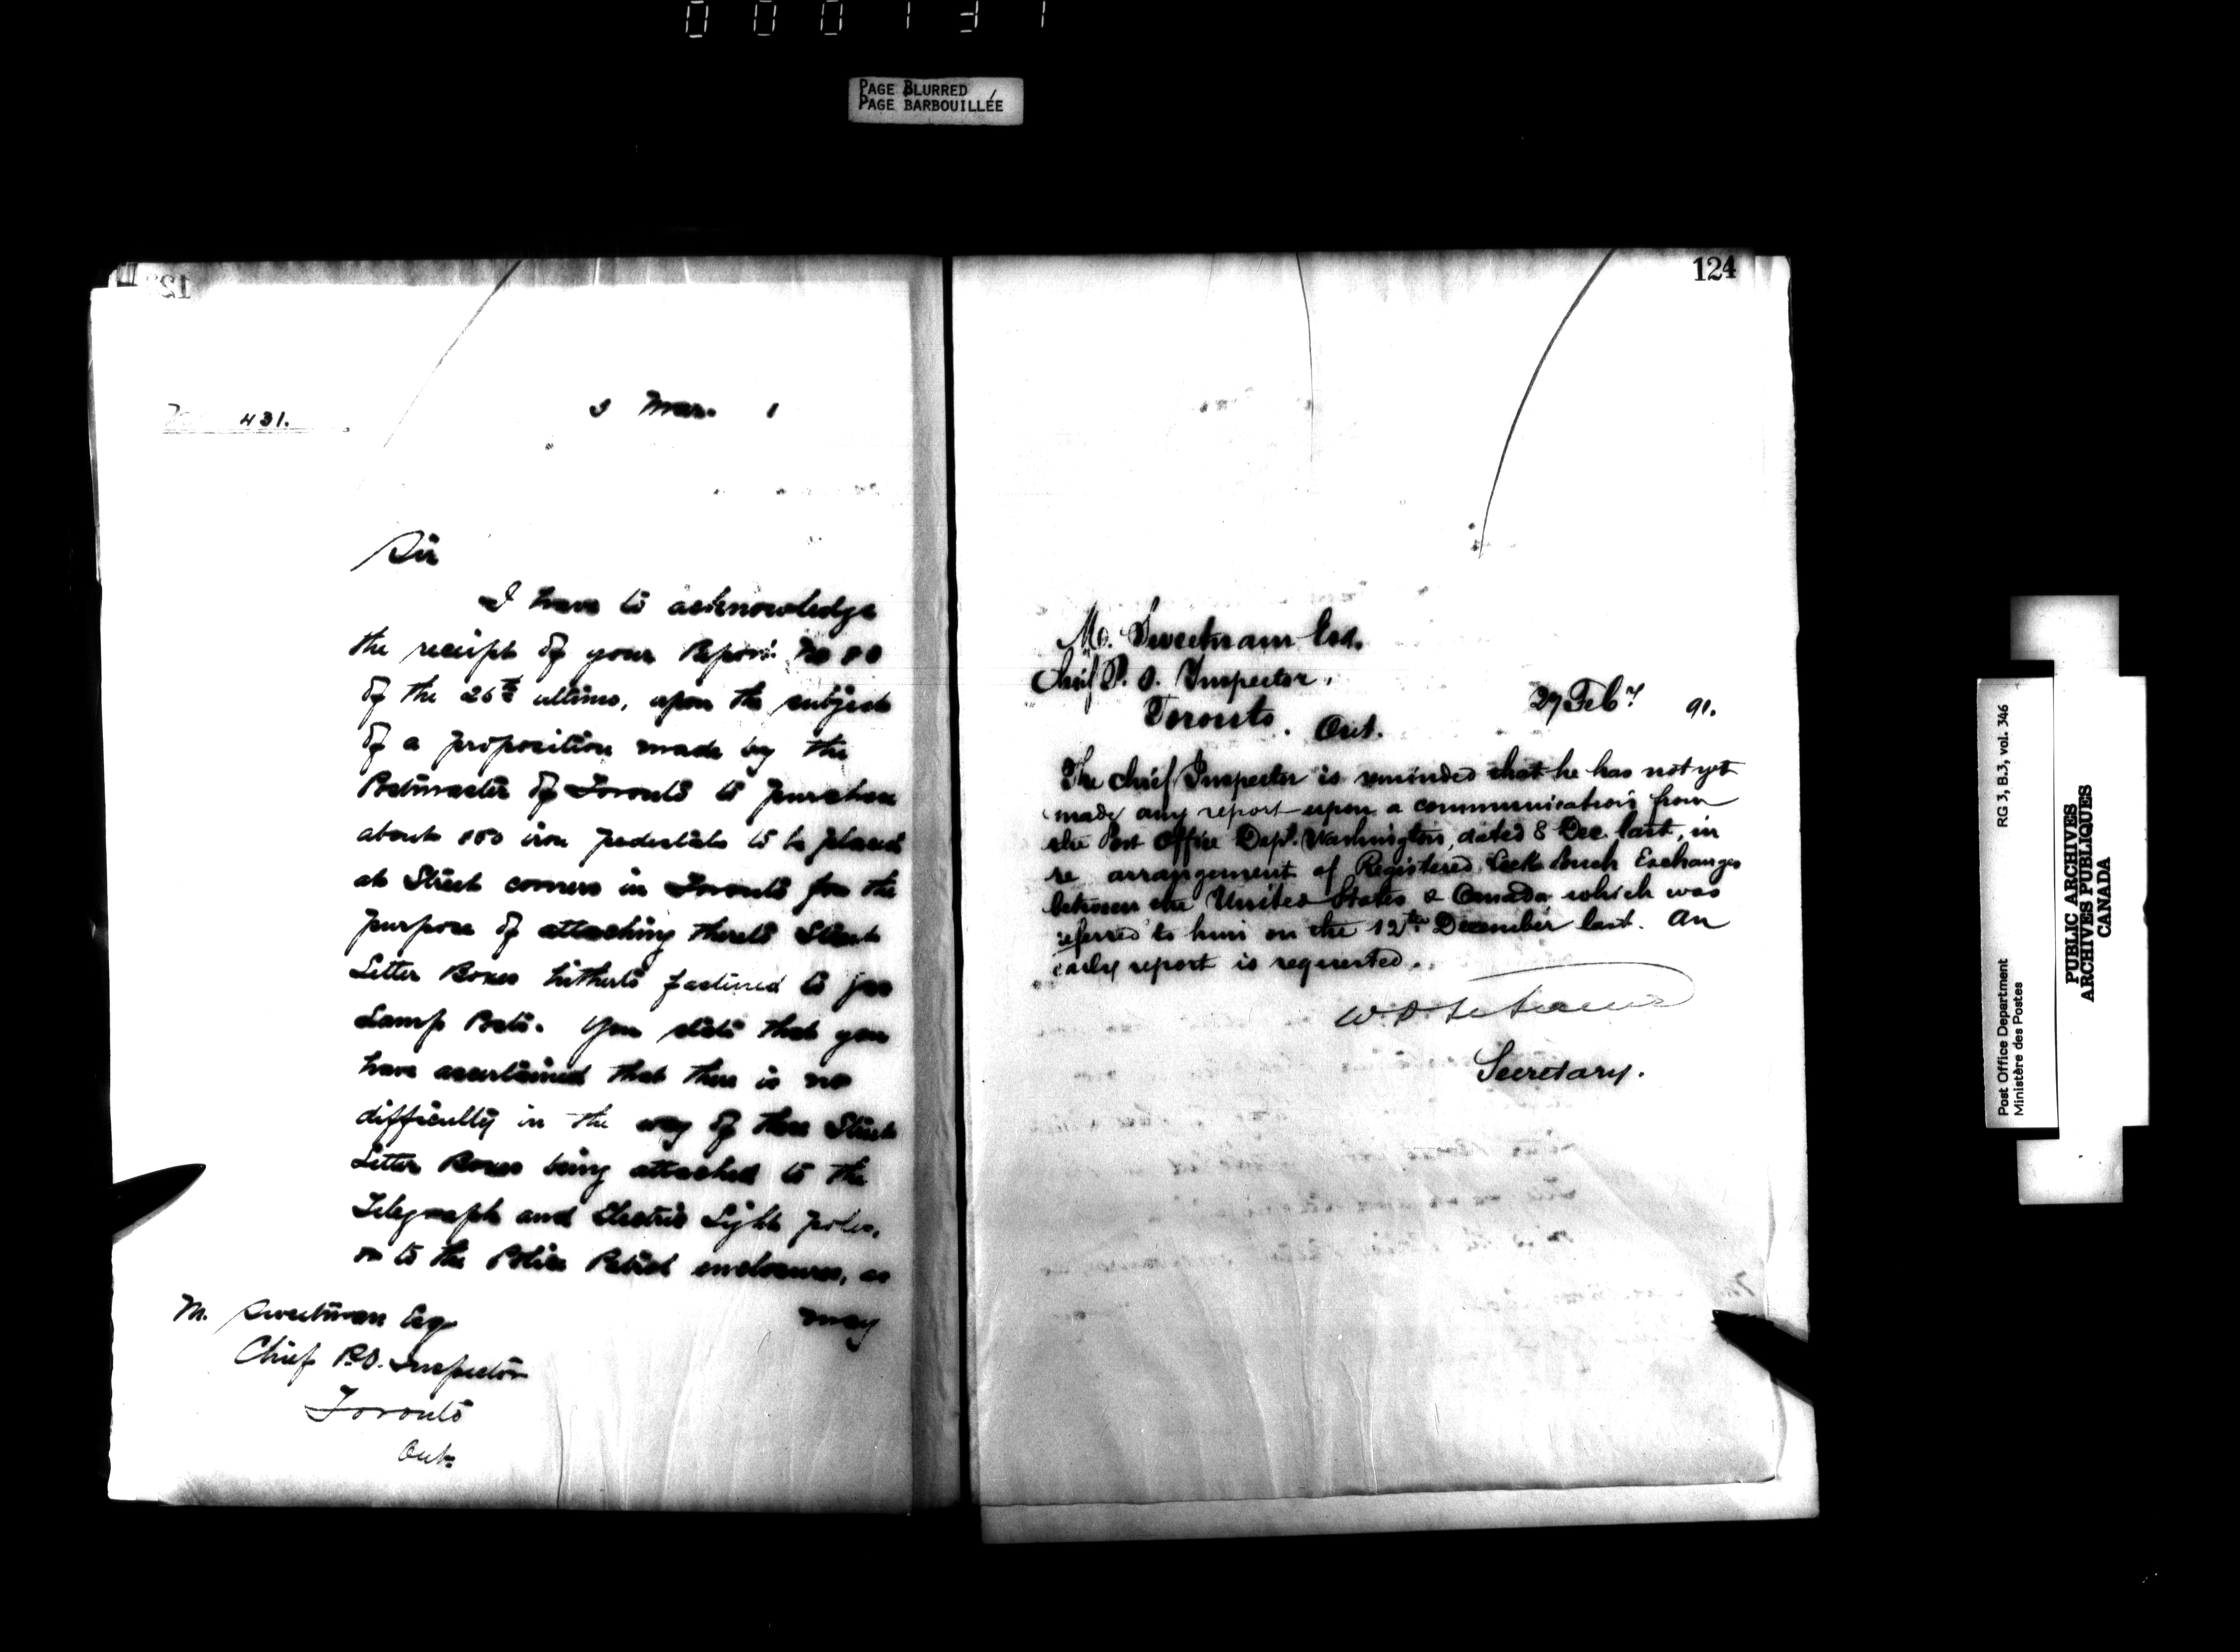 000131
PAGE BLURRED
PAGE BARBOUILLÉE
431.
3 Mar. 1
Sir
I have to acknowledge
the receipt of your Report No
of the 26th ultimo, upon the subject
of a proposition made by the
Postmaster of Toronto to purchase
about iron pedestals to be placed
at Street corners in Toronto for the
purpose of attaching thereto Street
Letter Boxes hitherto fastened to
Lamp Posts. You state that you
have ascertained that there is no
difficulty in the way of these Street
Letter Boxes being attached to the
Telegraph and Electric Light poles,
or to the Police Patrol enclosures, as
may
M. Sweetnam Esq
Chief P.O. Inspector
Toronto
Ont.
124
M. Sweetnam Esq.
Chief P. O. Inspector,
Toronto. Ont.
27 Feby 91.
The Chief Inspector is reminded that he has not yet
made any report upon a communication from
the Post Office Dept. Washington, dated 8 Dec. last, in
re arrangement of Registered Exchanges
between the United States & Canada which was
referred to him on the 12th December last. An
early report is requested.
Secretary.
Post Office Department
Ministère des Postes
RG 3, B.3, vol. 346
PUBLIC ARCHIVES
ARCHIVES PUBLIQUES
CANADA